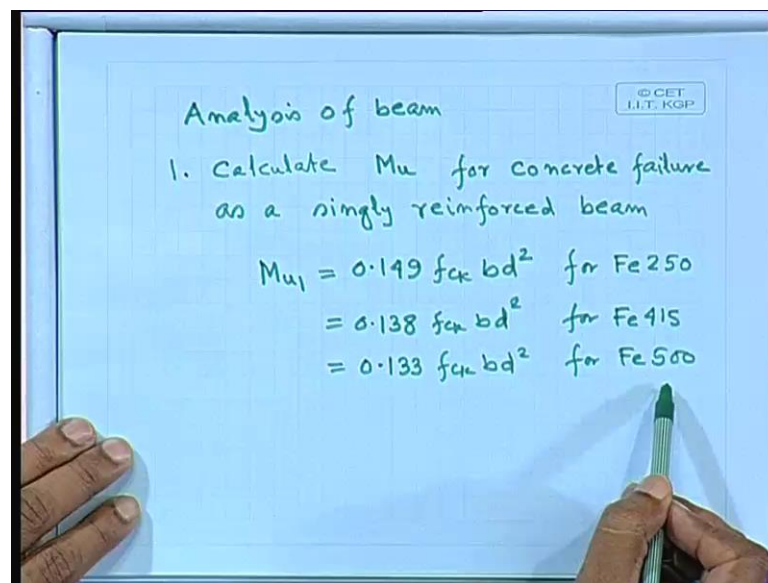 © CET
I.I.T. KGP
Analysis of beam
1. Calculate Mu for concrete failure
as a singly reinforced beam
Mu1 = 0.149 fck bd² for Fe 250
= 0.138 fck bd² for Fe 415
= 0.133 fck bd² for Fe 500